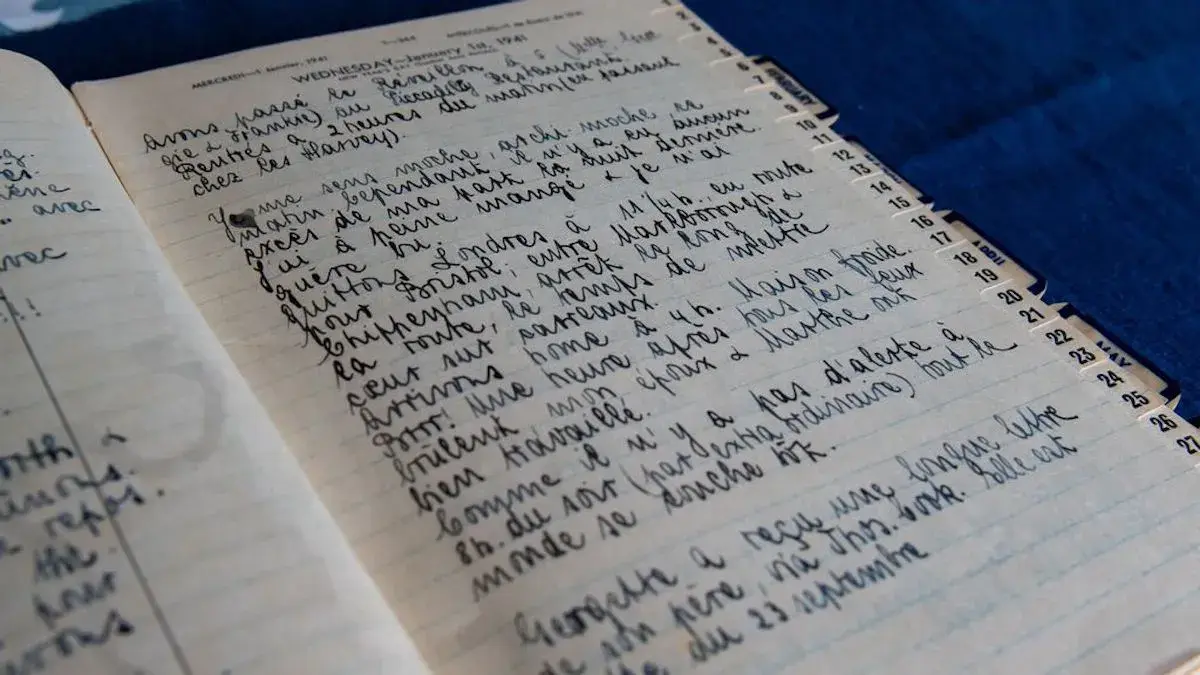 MERCREDI—1 Janvier, 1941
WEDNESDAY—January 1st, 1941
avons passé le Réveillon à 5
gie & Frankie) au Piccadilly Restaurant
Rentrés à 2 heures du matin
chez les Harvey).
Je me sens moche, archi-moche ce
matin. Cependant il n'y a eu aucun
excès de ma part la nuit dernière.
J'ai à peine mangé & je n'ai
guère bu.
Quittons Londres à 11 1/4 h. en route
pour Bristol, entre Marlborough &
Chippenham, arrêt le long de
la route, le temps de mettre
cœur sur carreaux.
Arrivons home à 4 h. Maison froide.
Brrr! Une heure après tous les feux
brûlent, mon époux & Marthe ont
bien travaillé.
Comme il n'y a pas d'alerte à
8 h. du soir (par extraordinaire) tout le
monde se couche tôt.
Georgette a reçu une longue lettre
de son père, via Thos. Cook. Elle est
du 23 septembre
FEBRUARY
APRIL
MAY
1
2
3
4
5
6
7
8
9
10
11
12
13
14
15
16
17
18
19
20
21
22
23
24
25
26
27
avec
avec
!!!
&
repos.
the
pour